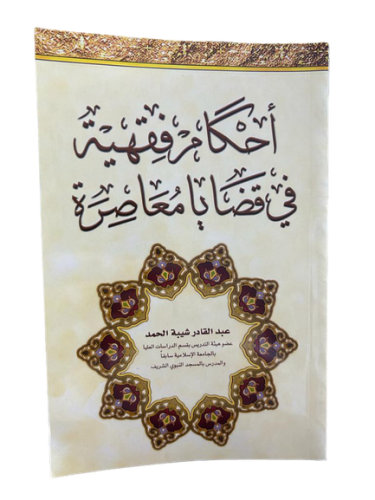 أحكام فقهية
في قضايا معاصرة
عبد القادر شيبة الحمد
عضو هيئة التدريس بقسم الدراسات العليا
بالجامعة الإسلامية سابقاً
والمدرس بالمسجد النبوي الشريف